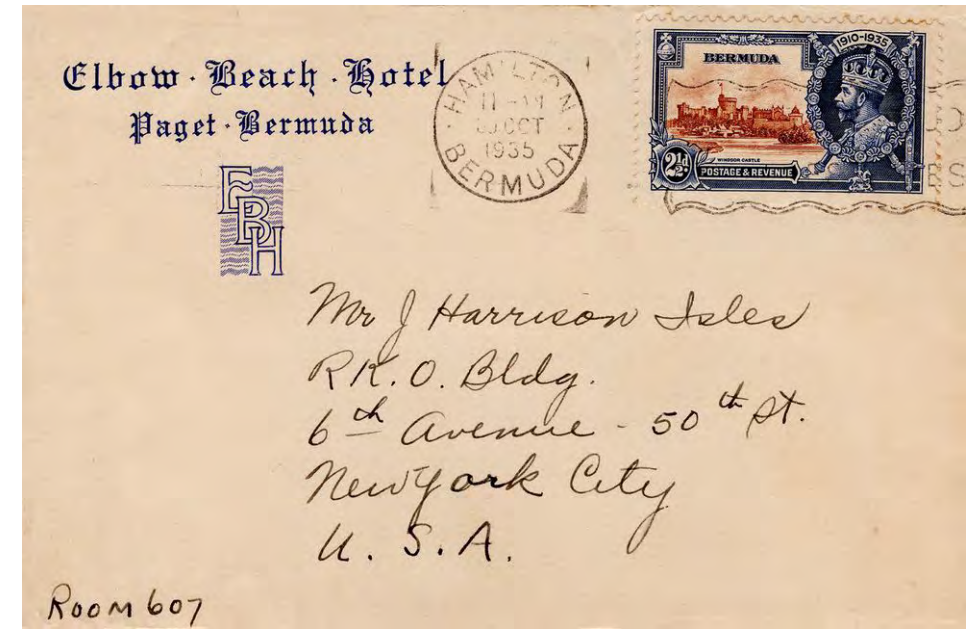 Elbow · Beach · Hotel
Paget · Bermuda
EBH
HAMILTON
11 - AM
OCT
1935
BERMUDA
1910-1935
BERMUDA
WINDSOR CASTLE
2½d.
POSTAGE & REVENUE
Mr J Harrison Isles
R.K.O. Bldg.
6th Avenue - 50th St.
New York City
U. S. A.
Room 607